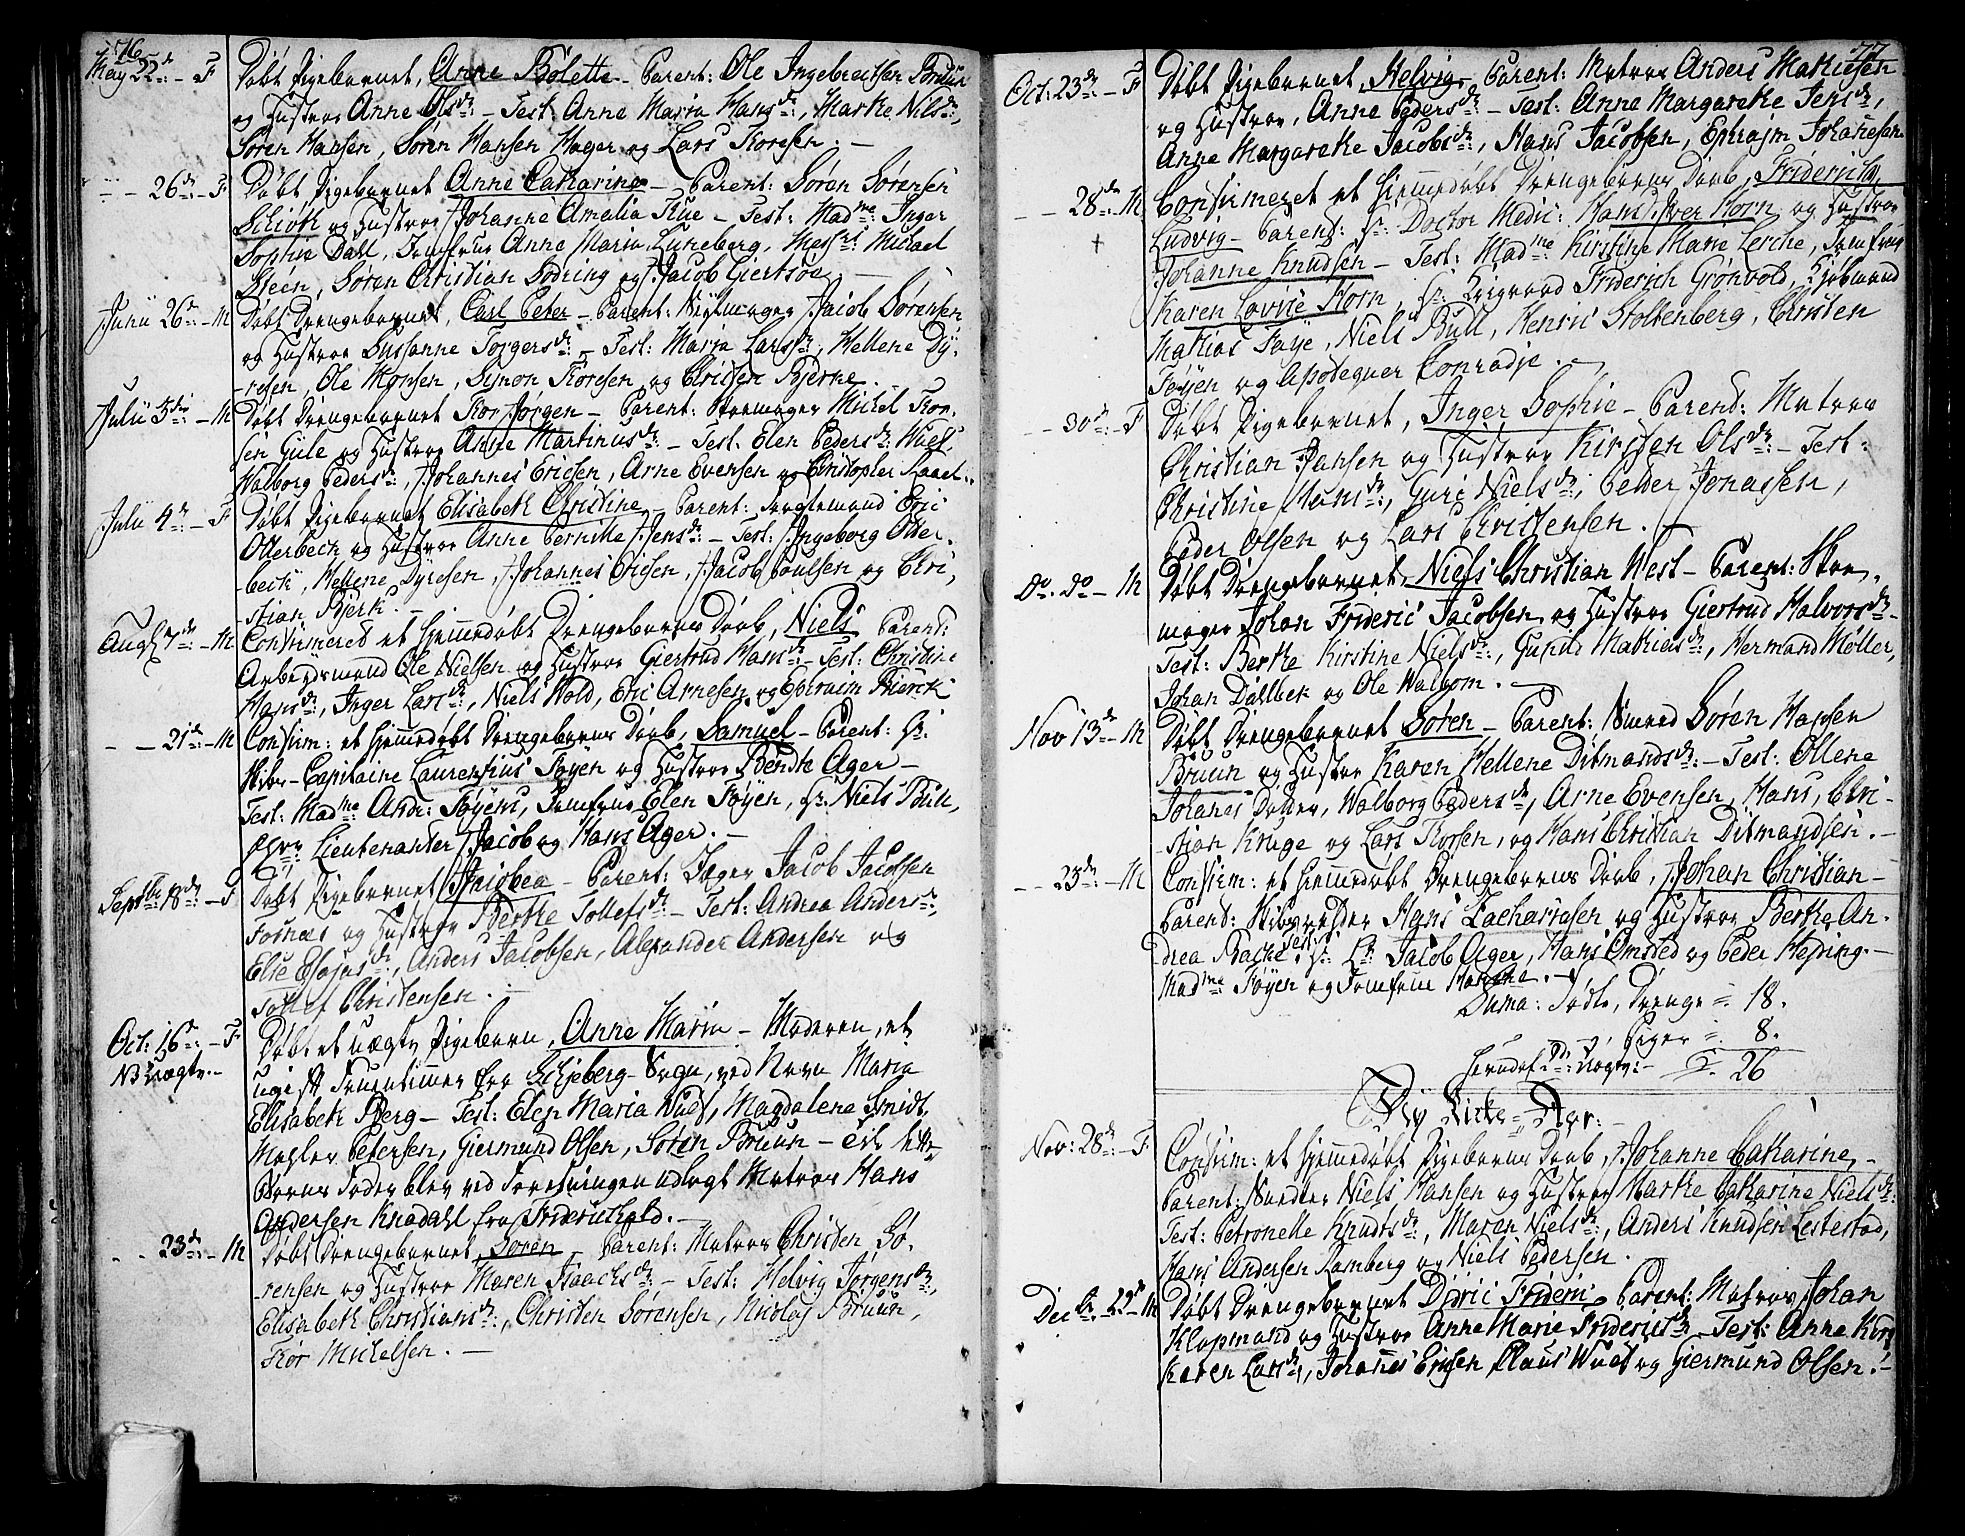 76
May 22de – F Døbt Pigebarnet, Anne Bolette – Parent: Ole Ingebrecthsen Bruun
og Hustroe Anne Olsdr: – Test: Anne Maria Hansdr:, Marthe Nilsdr:,
Søren Hansen, Søren Hansen Hager og Lars Thoresen. –
– – 26de – F Døbt Pigebarnet Anne Catharine – Parent: Søren Sørensen
Schiøth og Hustroe Johanne Amalia Thue – Test: Madme: Inger
Sophie Dall, Jomfrue Anne Maria Luneberg, Messrs Michael
Steen, Søren Christian Sodring og Jacob Giertsøe. –
Junii 26de – M Døbt Drengebarnet, Carl Peter – Parent: Jacob Sørensen
og Hustroe Susanne Torgersdr: – Test: Maria Larsdr:, Hellene Dy-
resen, Ole Monsen, Symon Thoresen og Christen Bjerke.
Julii 3die – M Døbt Drengebarnet Thor Jørgen – Parent: Skoemager Michel Thor-
sen Gule og Hustroe Anne Martinusdr: – Test. Elen Pedersdr: Wuel,
Walborg Pedersdr:, Johannes Ericsen, Arne Evensen og Christopher Laael.
Julii 4de – F Døbt Pigebarnet Elisabeth Christine – Parent: Eric
Otterbech og Hustroe Anne Pernille Jensdr: – Test: Ingeborg Otter-
bech, Hellene Dyresen, Johannes Ericsen, Jacob Poulsen og Chri-
stian Bjerk. –
Aug: 7de – M Confirmered et hjemmedøbt Drengebarns Daab, Niels Parent:
Arbeydsmand Ole Nielsen og Hustroe Giertrud Hansdr: – Test: Christine
Hansdr:, Inger Larsdr:, Niels Wold, Eric Arnesen og Ephraim Bierck
– – 21de – M Confirm: et hjemmedøbt Drengebarns Daab, Samuel – Parent: Hr:
Skibs-Capitaine Laurentius Føyen og Hustroe Benthe Ager –
Test: Madme Andr: Føyens, Jomfrue Elen Føyen, Hr: Niels Bull,
Lieutenanter Jacob og Hans Ager. –
Septbr 18de – F Døbt Pigebarnet Jacobea – Parent: Jacob Jacobsen
Fornæs og Hustroe Berthe Tollefsdr: – Test: Andrea Andersdr:,
Else Esaiasdr:, Anders Jacobsen, Alexander Andersen og
Tollef Christensen. –
Oct: 16de – F Døbt et uægte Pigebarn, Anne Maria – Moderen, et
NB uægte. – ugift Fruentimmer fra Schjeberg-Sogn, ved Navn Maria
Elisabeth Berg – Test: Elen Maria Wuel, Magdalene Smidt,
Mogler Petersen, Giermund Olsen, Søren Bruun – Til dette
Barns Fader blev ved Forretningen udlagt Matros Hans
Andersen Knadahl fra Friderichshald. –
– – 23de – M Døbt Drengebarnet Søren – Parent: Matros Christen Sø-
rensen og Hustroe Maren Isaachsdr: – Test: Helvig Jørgensdr:,
Elisabeth Christiansdr:, Christen Sørensen, Nicolay Bruun,
Thor Michelsen. –
77
Oct: 23de – F Døbt Pigebarnet Helvig – Parent: Matros Anders Mathiesen
og Hustroe, Anne Pedersdr: – Test: Anne Margarethe Jensdr,
Anne Margarethe Jacobsdr:, Hans Jacobsen, Ephrajm Johanesen
– – 28de – M Confirmeret et hjemmedøbt Drengebarns Daab, Friderich
+ Ludvig – Parent: Hr: Doctor Medic: Hans Iver Horn og Hustroe
Johanne Knudsen – Test: Madme Kirstine Marie Lerche, Jomfrue
Karen Lovvie Horn, Hr: Friderich Grønvold, Kjøbmænd
Mathias Faye, Niels Bull, Henric Stoltenberg, Christen
Føyen og Apothequer Conradje. –
– – 30de – F Døbt Pigebarnet, Inger Sophie – Parent: Matros
Christian Jansen og Hustroe Kirsten Olsdr: – Test:
Christine Hansdr:, Guri Nielsdr:, Pelder Jonassen,
Peder Olsen og Lars Christensen. –
do. do – M Døbt Drengebarnet Niels Christian West – Parent: Skoe-
mager Johan Frideric Jacobsen og Hustroe Giertrud Halvorsdr –
Test: Berthe Kirstine Nielsdr:, Gunild Mathiasdr:, Hermand Møller,
Johan Dallbek og Ole Walbom. –
Nov 13de – M Døbt Drengebarnet Søren – Parent: Smed Søren Hansen
Bruun og Hustroe Karen Hellene Ditmandsdr: – Test: Ollene
Johanes Datter, Walborg Pedersdr, Arne Evensen, Hans, Chri-
stian Kruge og Lars Thorsen, og Hans Christian Ditmandsen. –
– – 23de – M Confirm: et hjemmedøbt Drengebarns Daab, Johan Christian –
Parent: Skibsrehder Hans Zachariasen og Hustroe Berthe An-
drea Bache, Test: Hr: Lt: Jacob Ager, Hans Omsted og Peder Hejring. –
Madme Føyen og Jomfrue Hansche. –
Suma: Fødte, Drenge = 18.
" Piger = 8.
herudaf 1de: uægte: – S. 26
Ny Kirke-Aar.
Nov: 28de – F Confirm: et hjemmedøbt Pigebarns Daab, Johanne Catharine, –
Parent: Snedker Niels Hansen og Hustroe Marthe Catharine Nielsdr:
Test: Petronelle Knudsdr:, Maren Nielsdr:, Anders Knudsen Lestestad,
Hans Andersen Ramberg og Niels Pedersen.
Decbr. 29de – M Døbt Drengebarnet Didric Frideric – Parent: Matros Johan
Klopmand og Hustroe Anne Marie Fridericsdr – Test: Anne
Karen Larsdr, Johanes Ericsen, Claus Wuel og Giermund Olsen. –